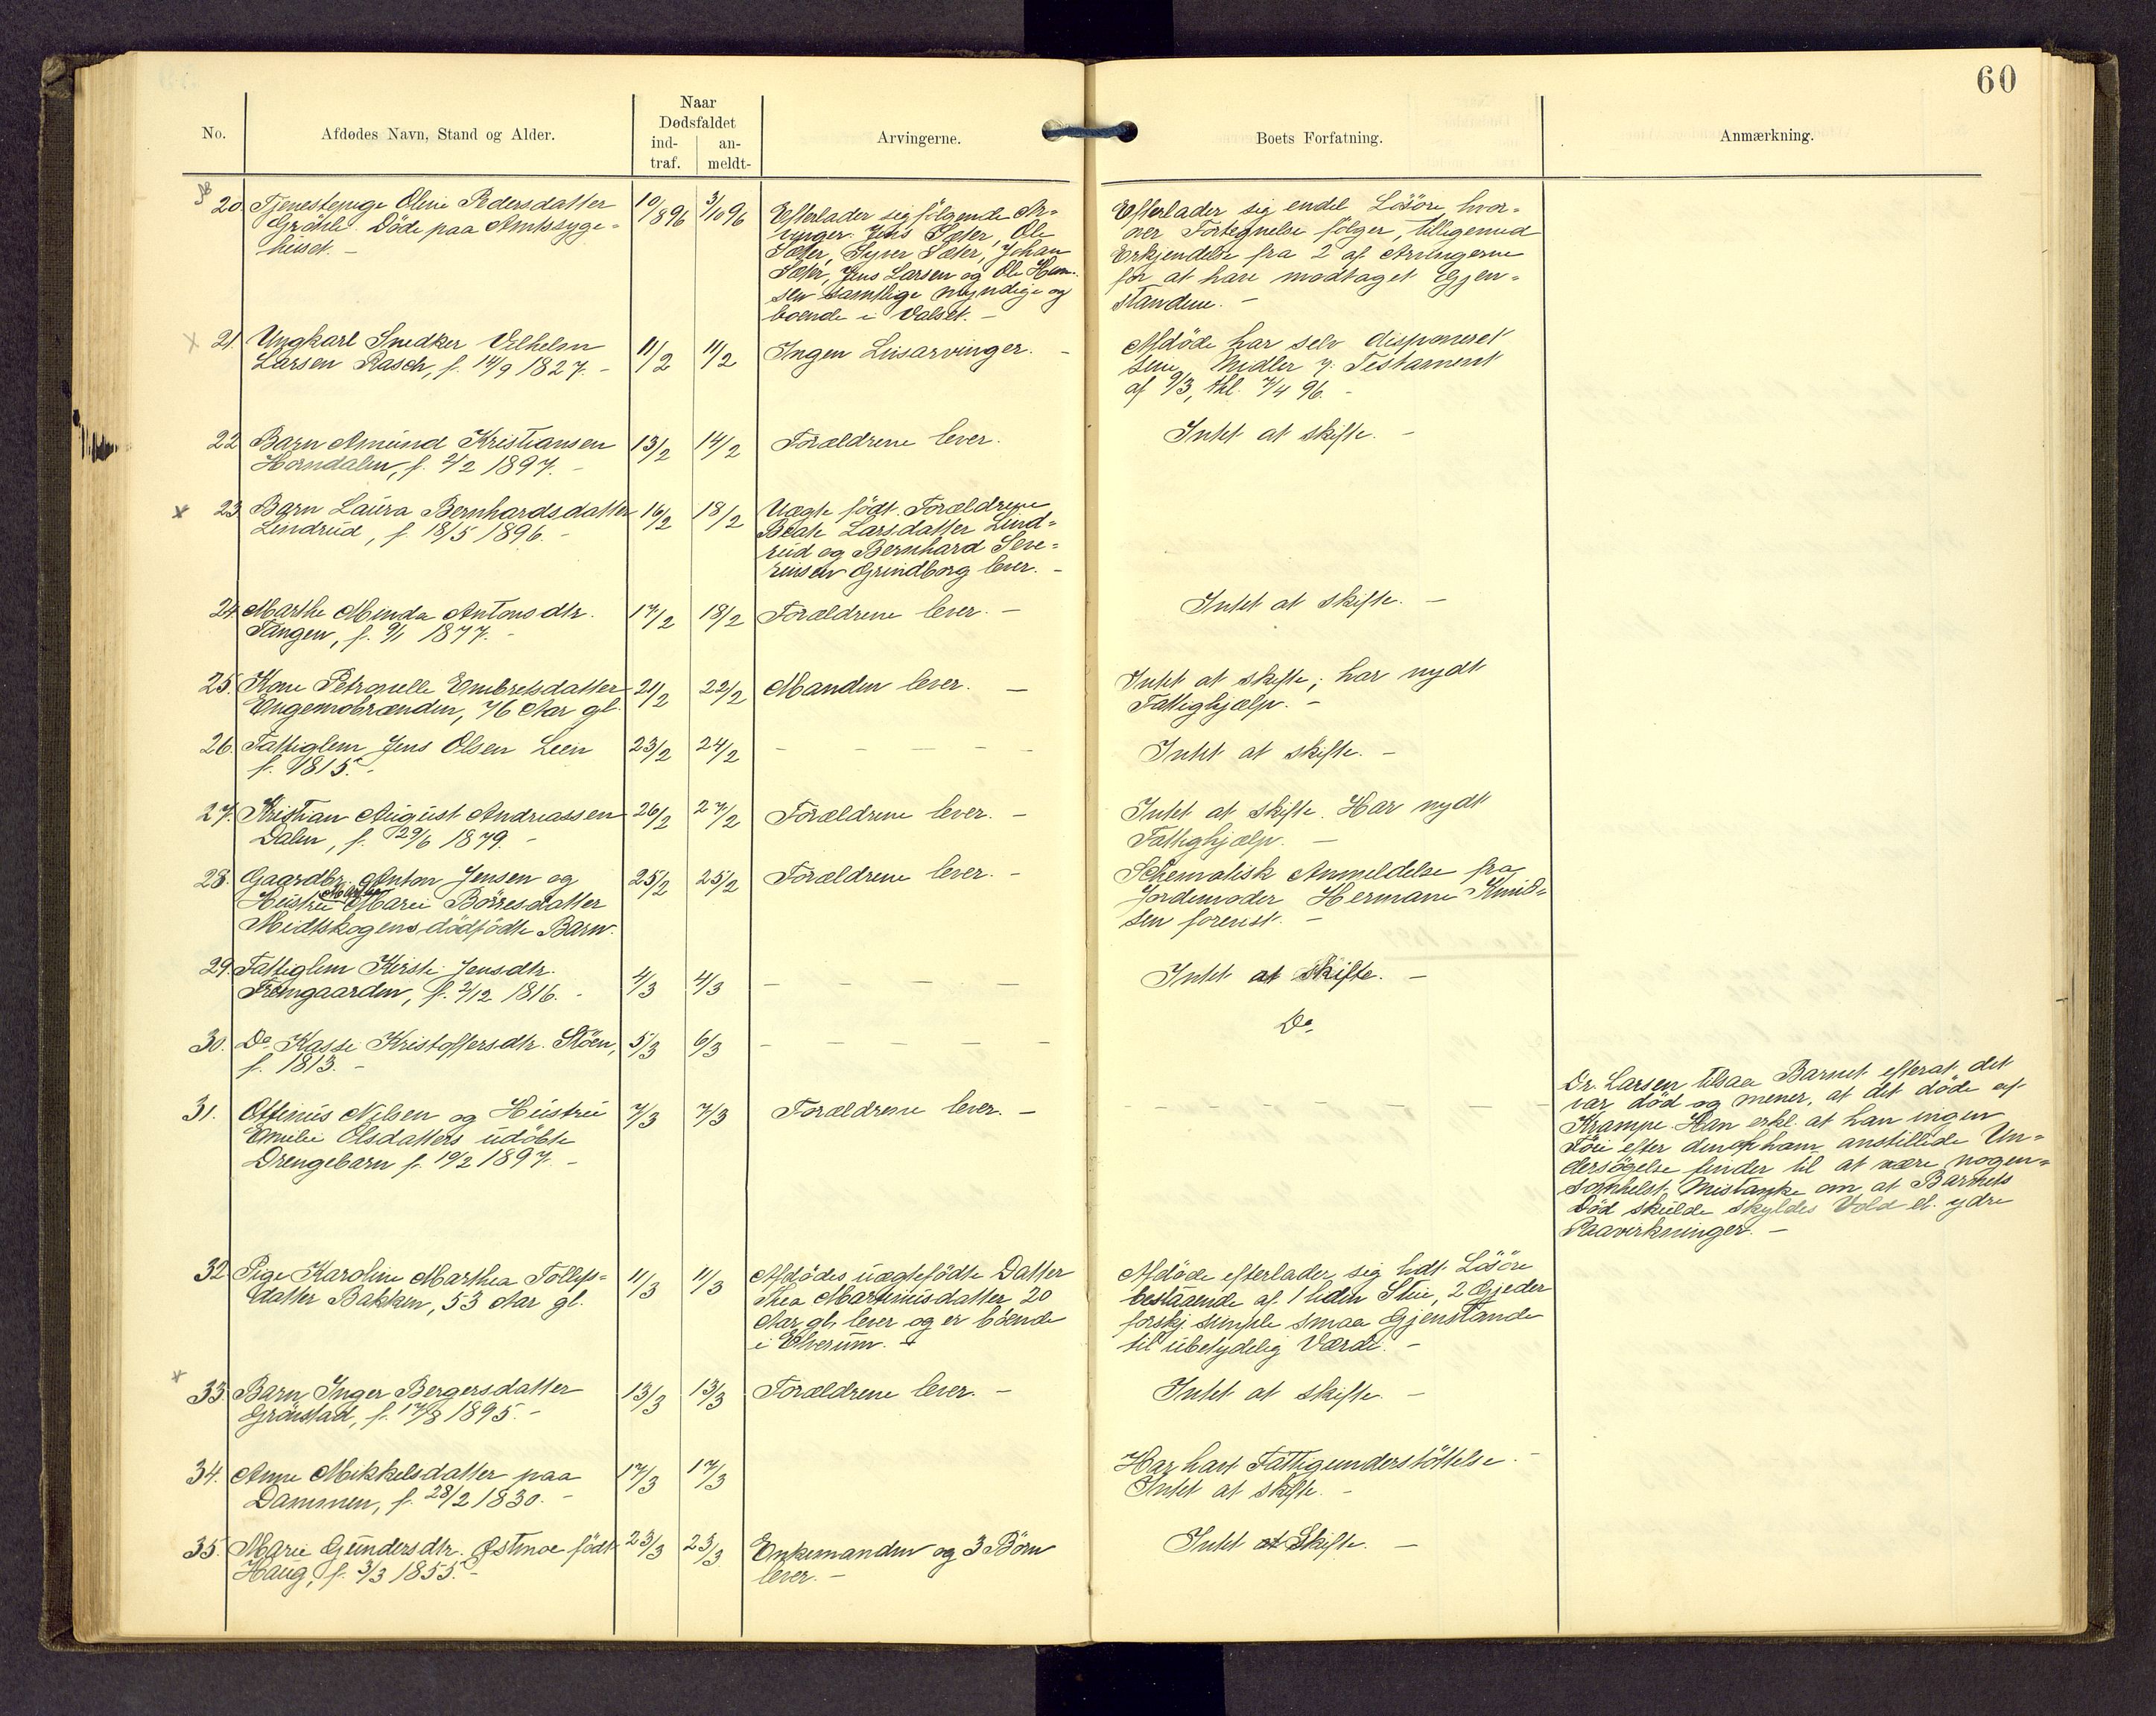 60
No.
Afdødes Navn, Stand og Alder.
Naar
Dødsfaldet
ind-
traf.
an-
meldt-
Arvingerne.
Boets Forfatning.
Anmærkning.
20. Tjenestepige Oline Pedersdatter
Döde paa Amtssyge-
huset. -
10/8 96 3/10 96
Efterlader sig følgende Ar-
vinger: Jens Sæter, Ole
Sæter, Syver Sæter, Johan
Sæter, Jens Larsen og Ole Han-
sen samtlige myndige og
boende i Valset. -
Efterlader sig endel Lösöre hvor-
over Fortegnelse følger, tilligemed
Erkjendelse fra 2 af Arvingerne
for at have modtaget Gjen-
standene. -
21. Ungkarl Snedker Vilhelm
Larsen Rasch, f. 14/9 1827. -
11/2 11/2
Ingen Livsarvinger. -
Afdöde har selv disponeret
sine Midler v. Testament
af 9/3, thl. 7/4 96. -
22 Barn Amund Kristiansen
Horndalen, f. 2/2 1897. -
13/2 14/2
Forældrene lever.
Intet at skifte. -
23 Barn Laura Bernhardsdatter
Lindrud, f. 18/5 1896. -
16/2 18/2
Uægte födt. Forældrene
Beate Larsdatter Lind-
rud og Bernhard Seve-
rinsen Grindborg lever. -
24. Marthe Minda Antonsdtr.
Tangen, f. 9/1 1877. -
17/2 18/2
Forældrene lever. -
Intet at skifte. -
25. Kone Petronelle Embretsdatter
Engemobrænden, 76 Aar gl.
21/2 22/2
Manden lever. -
Intet at skifte; har nydt
Fattighjælp. -
26. Fattiglem Jens Olsen Leen
f. 1815. -
23/2 24/2
- - - - -
Intet at skifte. -
27. Kristian August Andreassen
Dalen, f. 29/6 1879. -
26/2 27/2
Forældrene lever. -
Intet at skifte. Har nydt
Fattighjælp. -
28. Gaardbr. Anton Jensen og
Hustru Marthe Marie Börresdatter
Midtskogens dödfödte Barn.
25/2 25/2
Forældrene lever. -
Schematisk Anmeldelse fra
Jordemoder Hermane Knud-
sen forevist. -
29. Fattiglem Kirsti Jensdtr.
Fremgaarden, f. 2/12 1816. -
4/3 4/3
- - - - -
Intet at skifte. -
30. Do Kasse Kristoffersdtr. Stöen,
f. 1813. -
5/3 6/3
- - - - -
Do
31. Ottinius Nilsen og Hustru
Emilie Olsdatters udöbte
Drengebarn f. 19/2 1897. -
7/3 7/3
Forældrene lever. -
- - - - - - - -
Dr. Larsen tilsaa Barnet efterat det
var död og mener, at det döde af
Krampe. Han erkl. at han ingen
Föie efter den af ham anstillede Un-
dersögelse finder til at være nogen-
somhelst Mistanke om at Barnets
Död skulde skyldes Vold el. ydre
Paavirkninger. -
32 Pige Karoline Marthea Tollefs-
datter Bakken, 53 Aar gl.
11/3 11/3
Afdödes uægtefödte Datter
Thea Martinusdatter 20
Aar gl. lever og er boende
i Elverum. -
Afdöde efterlader sig lidt Lösöre
bestaaende af 1 liden Stue, 2 Gjeder
forskj. simple smaa Gjenstande
til ubetydelig Værdi. -
33 Barn Inger Bergersdatter
Grönstad, f. 17/8 1895. -
13/3 13/3
Forældrene lever. -
Intet at skifte. -
34. Anne Mikkelsdatter paa
Dammen, f. 28/2 1830. -
17/3 17/3
Har havt Fattigunderstöttelse. -
Intet at skifte. -
35. Marie Gundersdtr. Østmoe födt
Haug, f. 3/3 1855. -
23/3 23/3
Enkemanden og 3 Börn
lever. -
Intet at Skifte. -